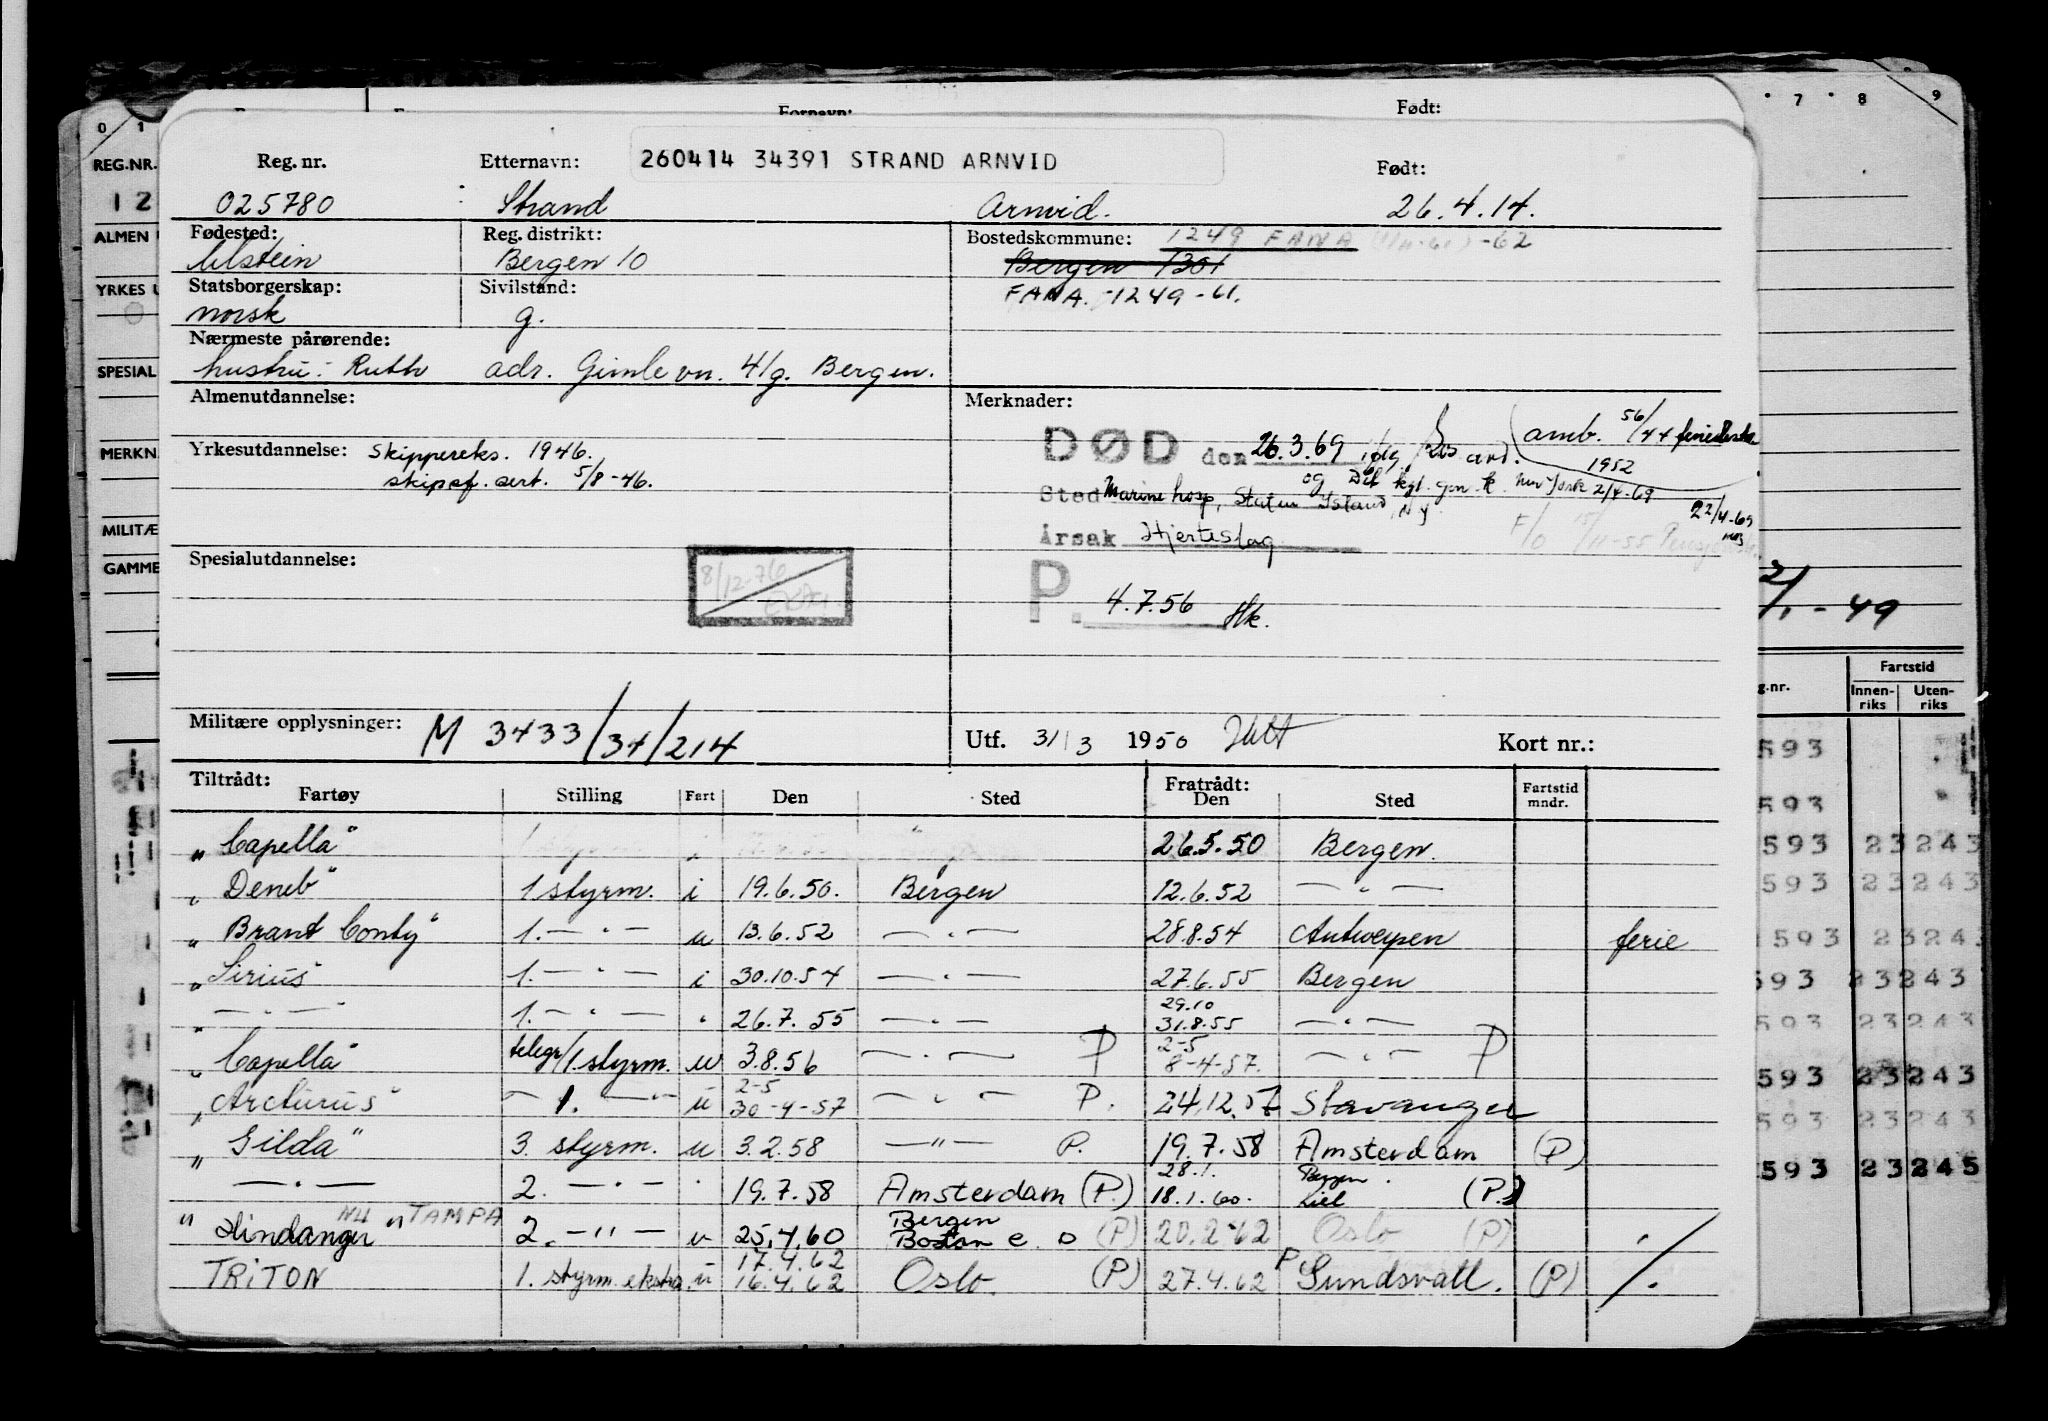 Fornavn: Født:
0 1 7 8 9
REG.NR. Reg. nr. Etternavn: 260414 34391 STRAND ARNVID Født:
12 025780 Strand Arnvid. 26.4.14.
ALMEN Fødested: Reg. distrikt: Bostedskommune: 1249 FANA -62
Bergen 10 Bergen 1301
YRKES Statsborgerskap: Sivilstand: FANA. -1249-61.
norsk g.
Nærmeste pårørende:
SPESIAL hustru: Ruth adr. Gimle vn. 4/g. Bergen.
Almenutdannelse: Merknader:
amb. 56/44
MERKN. Yrkesutdannelse: Skippereks. 1946. DØD den 26.3.69
1952
skipsf. sert. 5/8-46. og Det kgl. gen. k. New York 2/4-69
Sted Marine hosp, Staten Island, NY
22/4-69
MILITÆ Årsak Hjerteslag
F/O 15/11-55
GAMME Spesialutdannelse:
8/12-76
P. 4.7.56 Hk.
2/1-49
Fartstid
g.nr. Innenriks Utenriks
Militære opplysninger: M 3433/34/214 Utf. 31/3 1950 Kort nr.:
593
Tiltrådt: Fratrådt:
Fartøy Stilling Fart Den Sted Den Sted Fartstid mndr.
593
"Capella" 26.5.50 Bergen. 593 23 243
"Deneb" 1 styrm. i 19.6.50. Bergen 12.6.52 — " — 593 23 243
"Brant County" 1. — " — u 13.6.52 — " — 28.8.54 Antwerpen ferie 593 23 243
"Sirius" 1. — " — i 30.10.54 — " — 27.6.55 Bergen 593 23 243
29.10
" — " — " 1. — " — " 26.7.55 — " — 31.8.55 — " — 593 23 243
2-5
"Capella" telegr/1. styrm. u 3.8.56 — " — P 8-4-57. — " — P 593 23 243
2-5
"Arcturus" — 1. — " u 30-4-57 — " — P. 24.12.57 Stavanger 593 23 243
"Gilda" 3. styrm. u 3.2.58 — " — P. 19.7.58 Amsterdam (P) 593 23 245
28.1. Bergen.
— " — 2. — " — " 19.7.58 Amsterdam (P.) 18.1.60. Kiel (P.)
NU "TAMPA Bergen
"Hindanger" 2. — " — u 25.4.60 Boston e. o (P) 20.2-62 Oslo (P)
17.4.62
TRITON 1. styrm. ekstra. u 16.4.62 Oslo. (P) 27.4.62 P Sundsvall. (P) /.